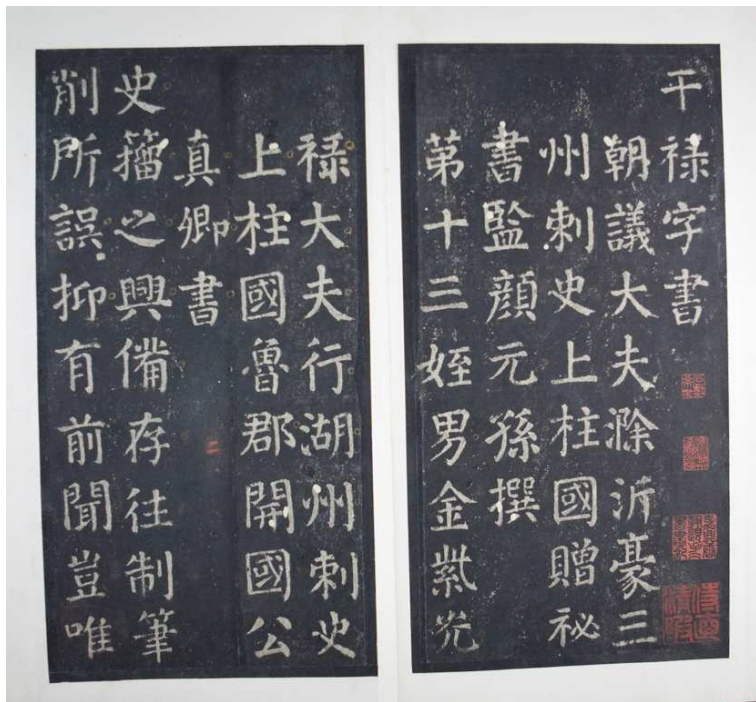 干禄字書
朝議大夫滁沂豪三
州刺史上柱國贈祕
書監顔元孫撰
第十三姪男金紫光
禄大夫行湖州刺史
上柱國魯郡開國公
真卿書
史籒之興備存往制筆
削所誤抑有前聞豈唯